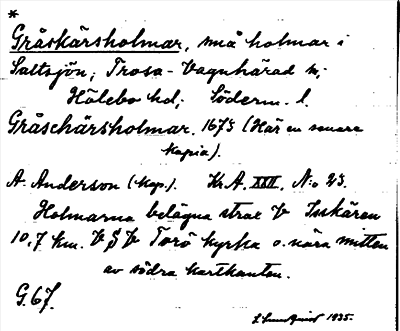 *
Gråskärsholmar, små holmar i
Saltsjön; Trosa-Vagnhärad sn;
Hölebo hd; Söderm. l.
Gråschärsholmar. 1675 (Här en senare
kopia).
A. Anderson (kop.). Kr.A. XXII. No 23.
Holmarna belägna strax V Isskären
10,7 km. V S V Torö kyrka o. nära mitten
av södra kartkanten.
G. 67.
1935.